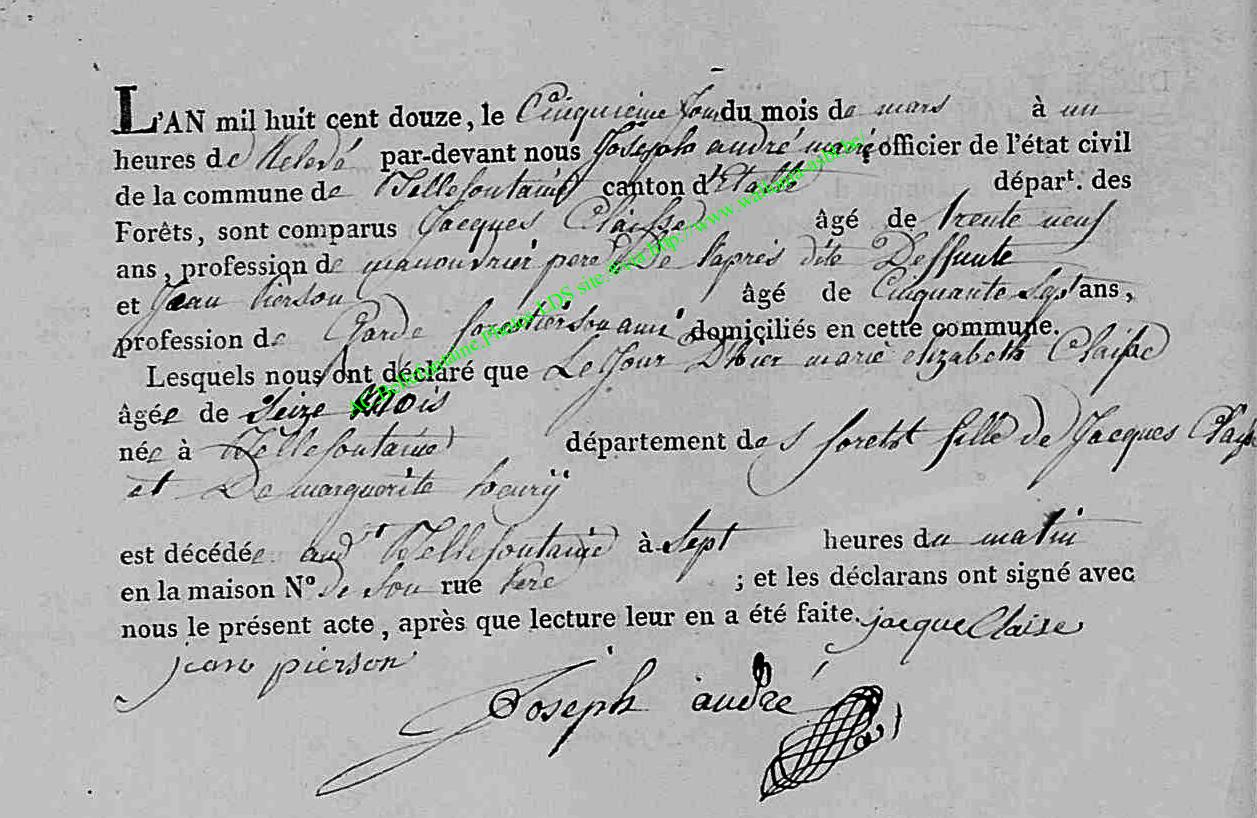 L'AN mil huit cent douze, le Cinquieme Jour du mois de mars à un
heures de Relevé par-devant nous Joseph andré maire officier de l'état civil
de la commune de Bellefontaine canton d'Etalle départ. des
Forêts, sont comparus Jacques Claisse âgé de trente neuf
ans, profession de manouvrier pere De l'apres dite Deffunte
et Jean pierson âgé de Cinquante Sept ans,
profession de Garde forestier son ami domiciliés en cette commune.
Lesquels nous ont déclaré que Le Jour D'hier marie elizabeth Claisse
âgée de Seize Mois
née à Bellefontaine département de s forets fille de Jacques
et De marguerite henrÿ
est décédée audt Bellefontaine à Sept heures du matin
en la maison N.º de Son rue Pere ; et les déclarans ont signé avec
nous le présent acte, après que lecture leur en a été faite. jacque Claise
jean pierson
Joseph andré
AC Bellefontaine Photos LDS site via http://www.wallonia-asbl.be/